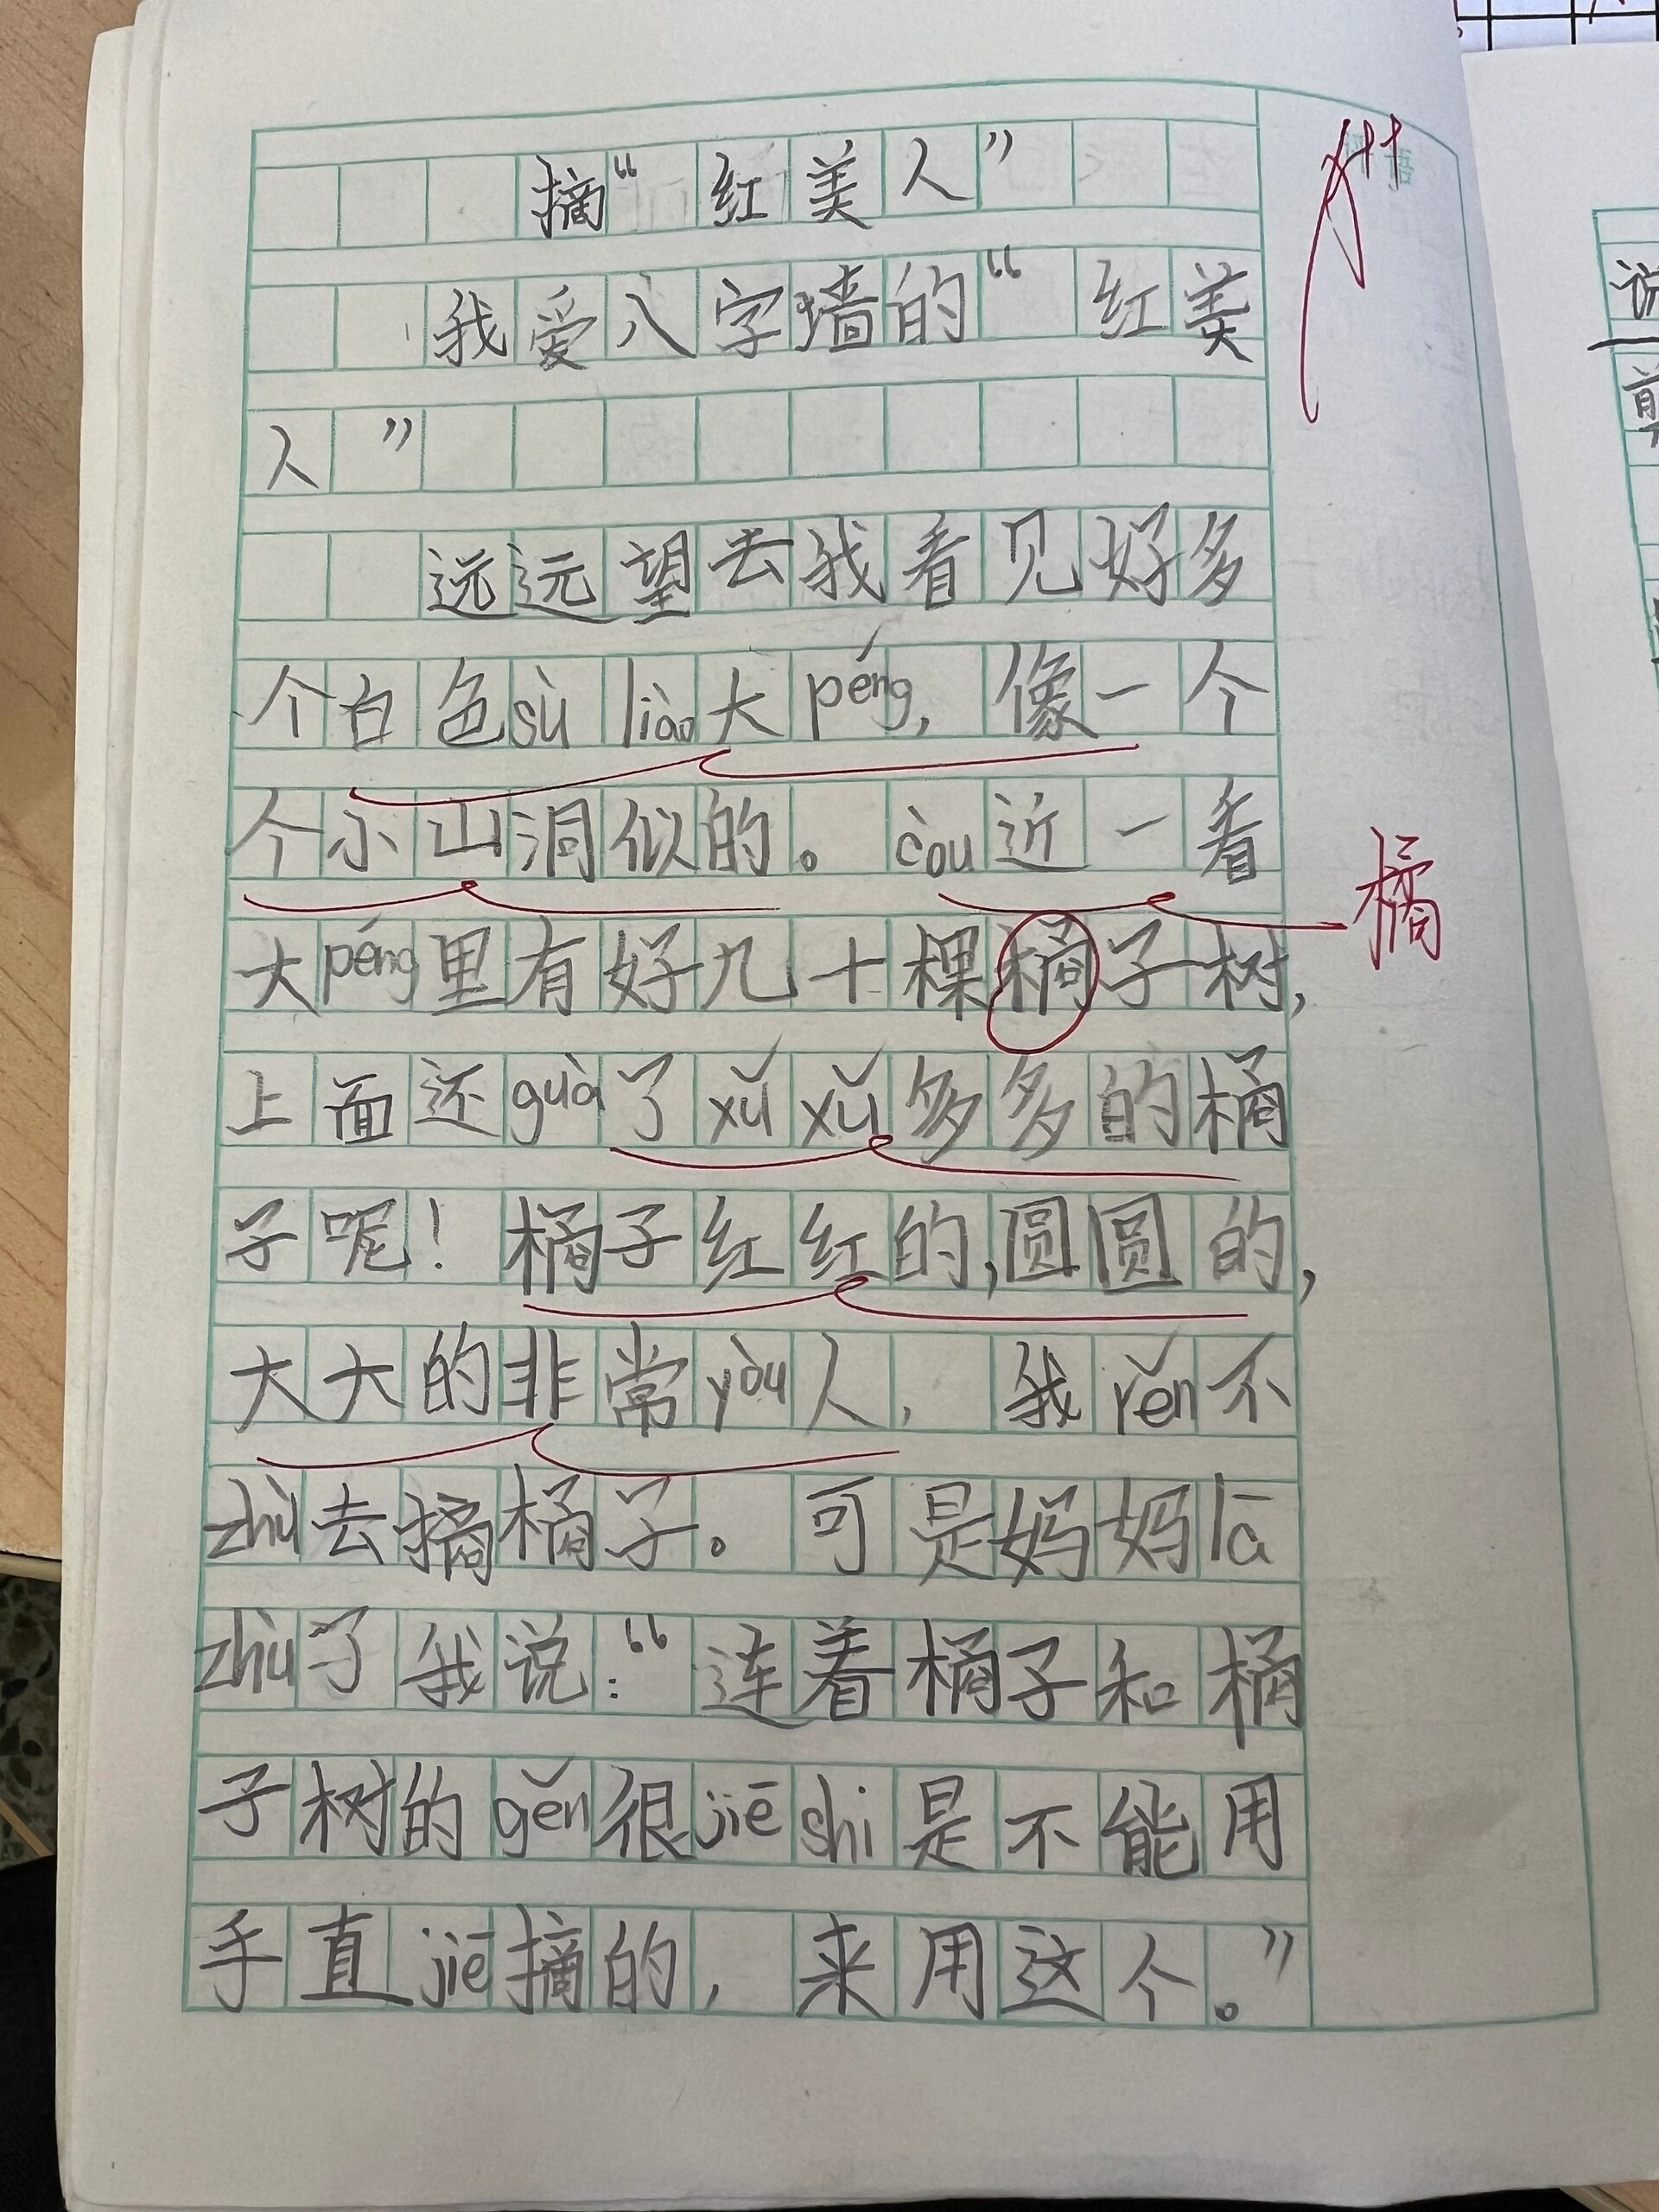 摘“红美人”
我爱八字墙的“红美
人”
远远望去我看见好多
个白色sù liào大péng,像一个
个小山洞似的。còu近一看
橘
大péng里有好几十棵橘子树,
上面还guà了xǔ xǔ多多的橘
子呢!橘子红红的,圆圆的,
大大的非常yòu人,我rěn不
zhù去摘橘子。可是妈妈lā
zhù了我说:“连着橘子和橘
子树的gěn很jiē shi是不能用
手直jiē摘的,来用这个。”